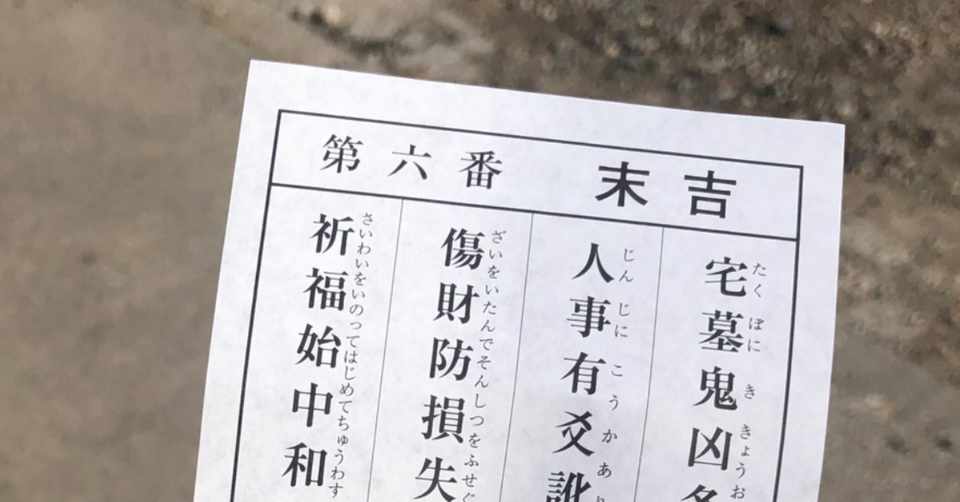 第六番 末吉
たく ぼに き きょうお
宅墓鬼凶
じん じに こう かあり
人事有爻訛
ざいをいたんでそんしつをふせぐ
傷財防損失
さいわいをいのってはじめてちゅうわす
祈福始中和